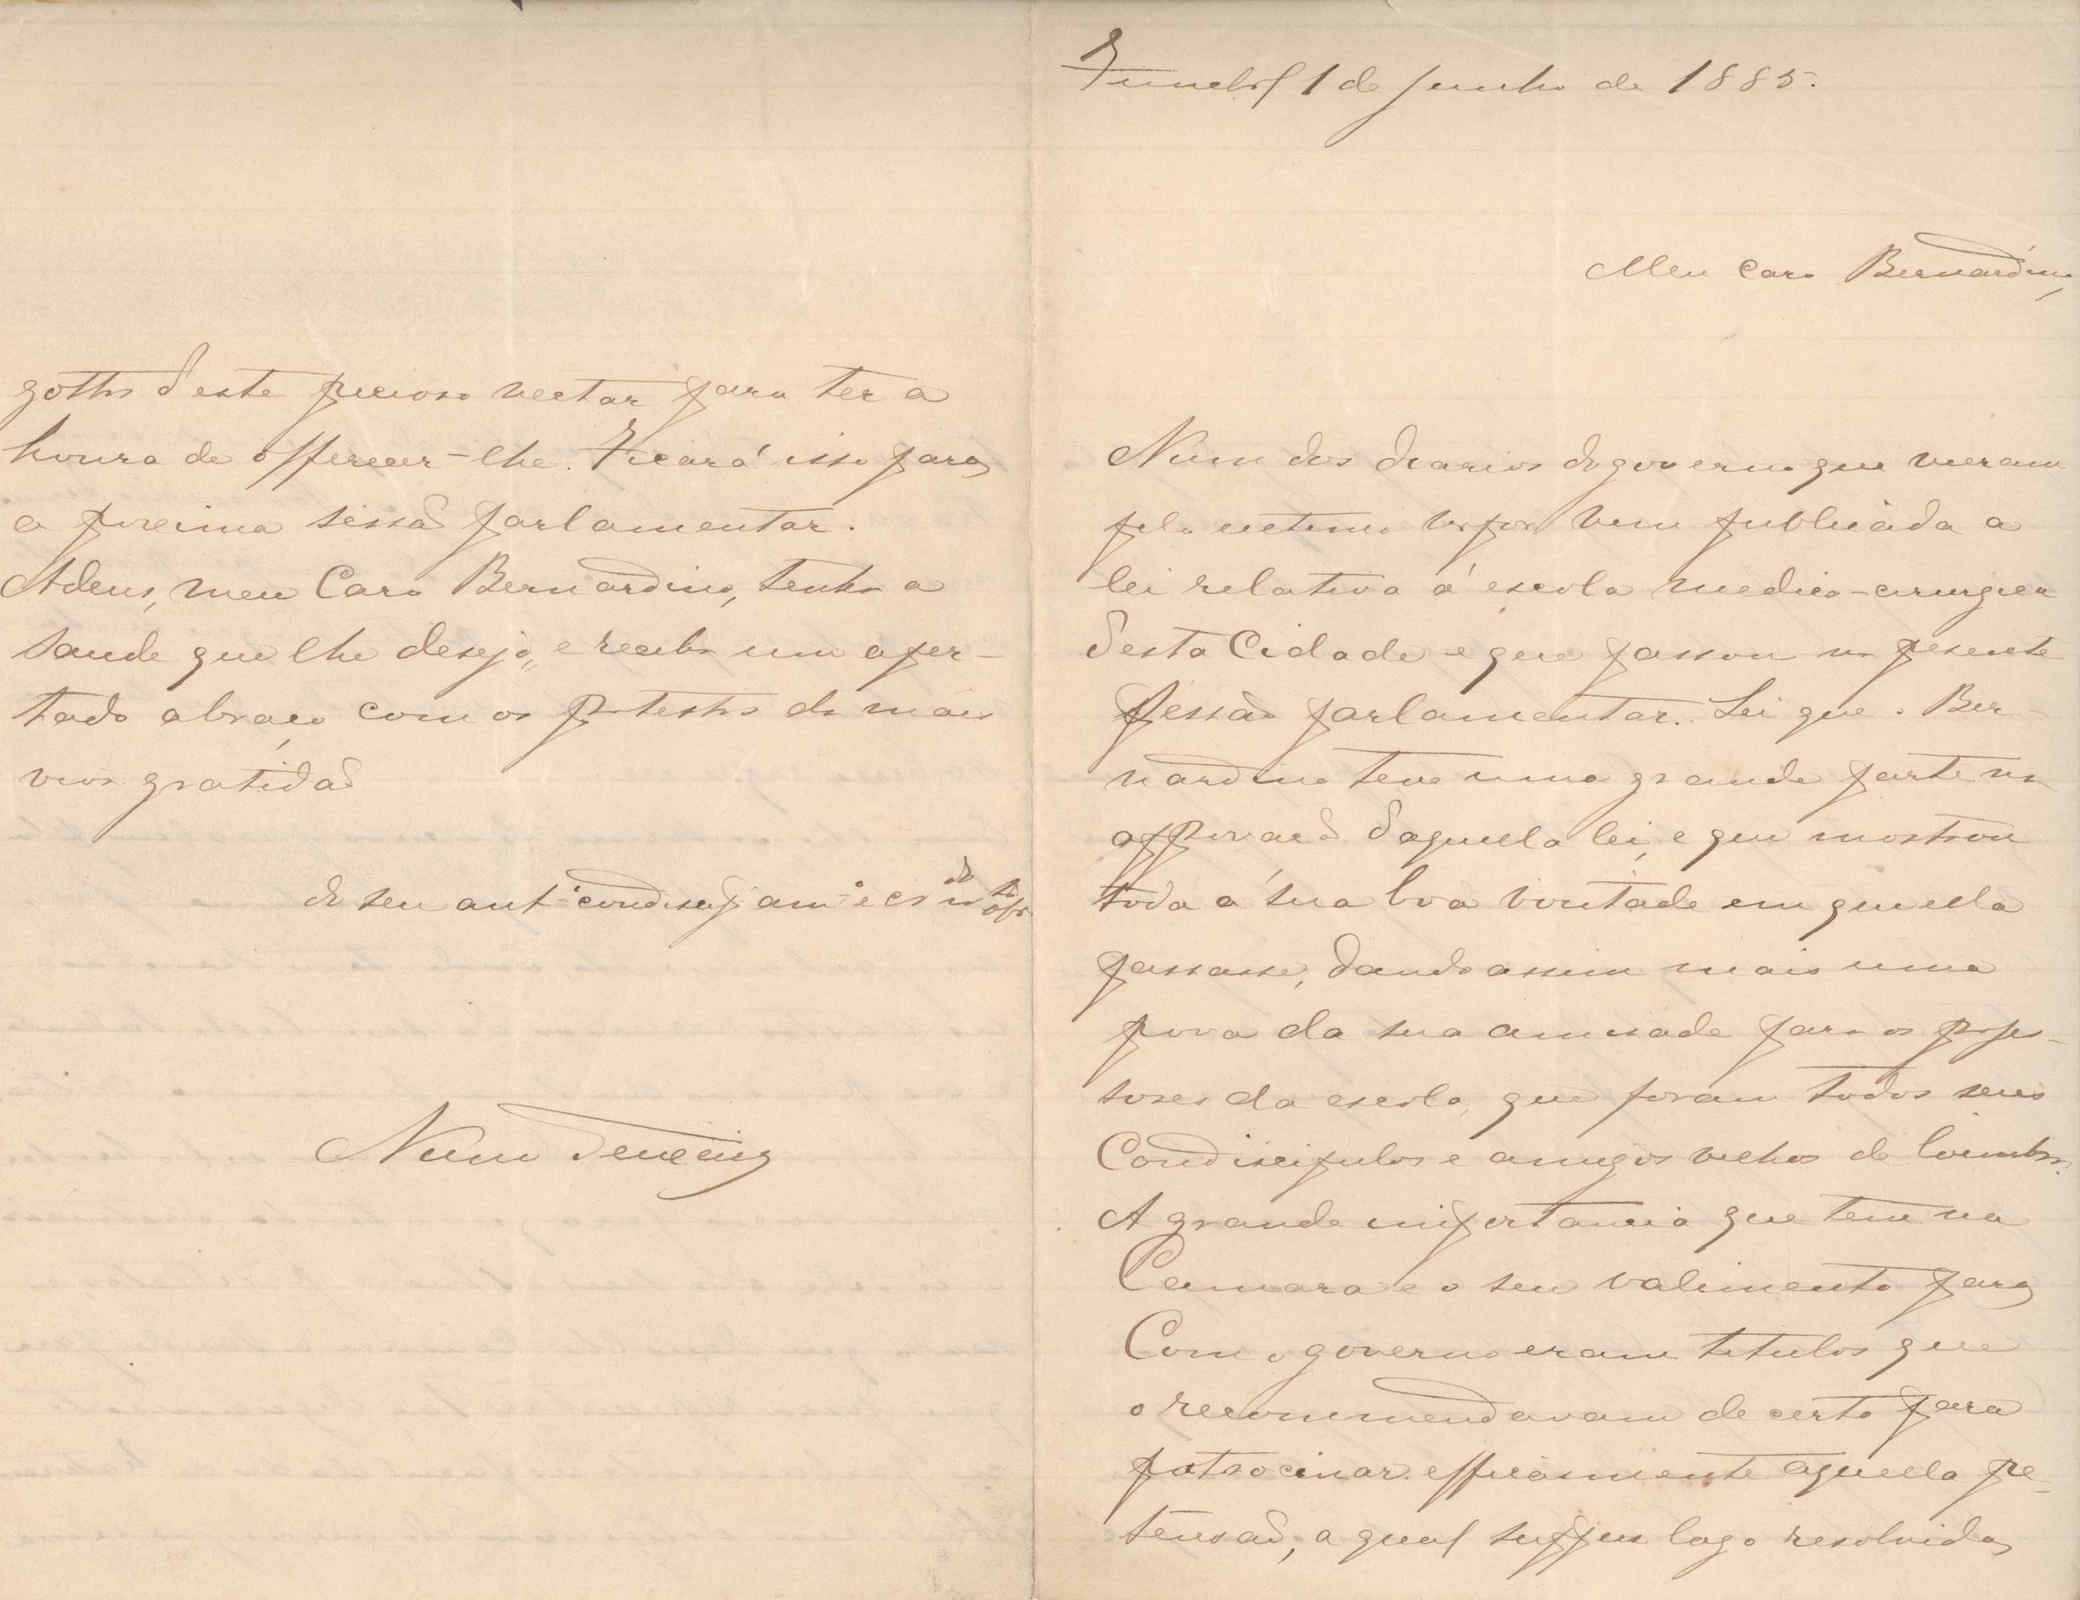 Funchal 1 de Junho de 1885.
Meu caro Bernardino,
Num dos diarios do governo que vieram
pelo ultimo vapor vem publicada a
lei relativa á escola medico-cirurgica
desta Cidade e que passou na presente
sessão parlamentar. Sei que o Ber-
nardino teve uma grande parte na
approvação daquella lei, e que mostrou
toda a sua boa vontade em que ella
passasse, dando assim mais uma
prova da sua amisade para os profes-
sores da escola, que foram todos seus
Condiscipulos e amigos velhos de Coimbra.
A grande importancia que tem na
Camara e o seu valimento para
Com o governo eram titulos que
o recommendavam de certo para
patrocinar efficasmente aquella pre-
tensão, a qual suppus logo resolvida
gottas d'este precioso nectar para ter a
honra de offerecer-lhe. Ficará isso para
a proxima sessão parlamentar.
Adeus, meu Caro Bernardino, tenha a
saude que lhe desejo, e receba um aper-
tado abraço com os protestos da mais
viva gratidão
do seu ant.º condiscip. am.º e cr.do
Nuno Teixeira